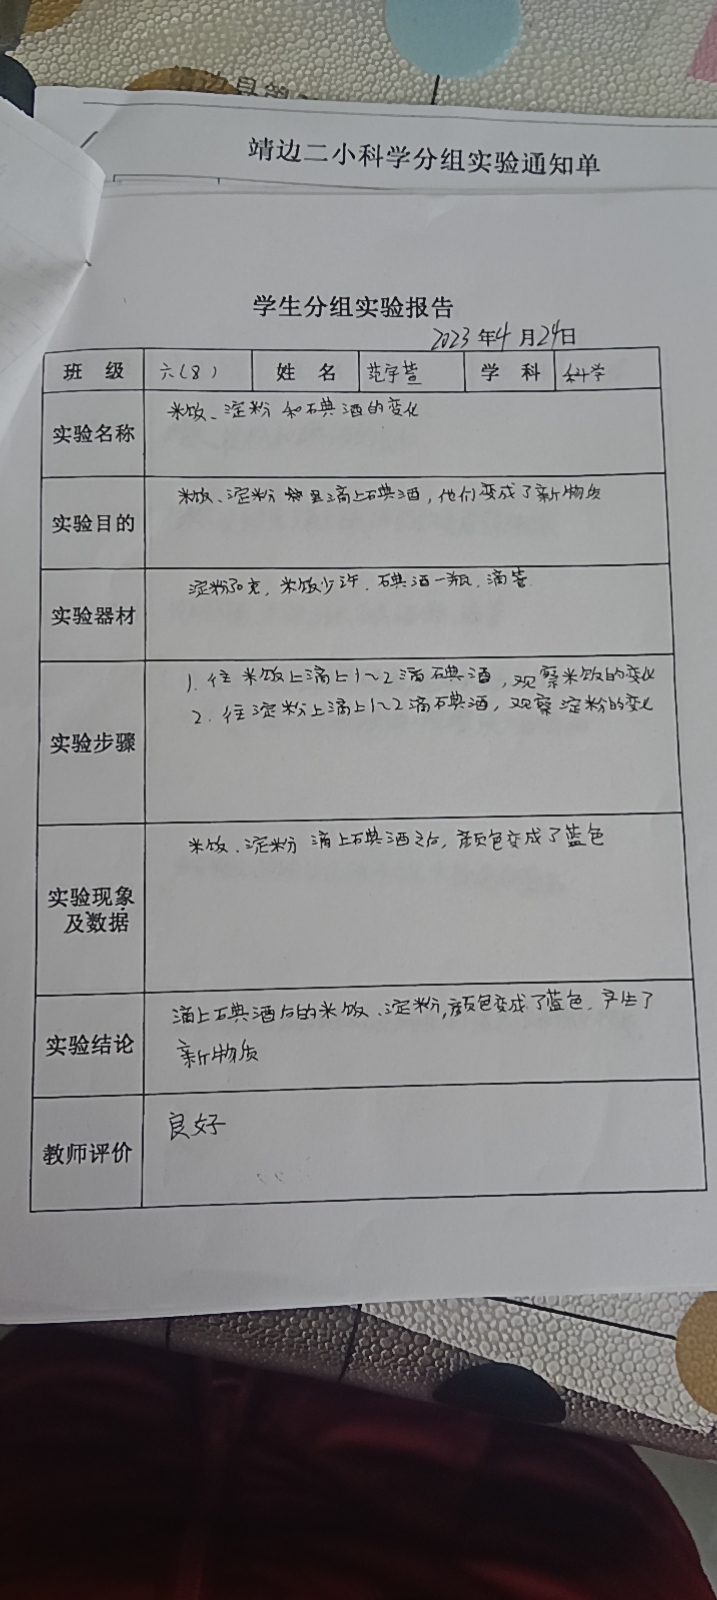 靖边二小科学分组实验通知单
学生分组实验报告
2023年4月24日
班 级 六(8) 姓 名 范宇萱 学 科 科学
实验名称 米饭、淀粉和碘酒的变化
实验目的 米饭、淀粉 滴上碘酒，他们变成了新物质
实验器材 淀粉30克，米饭少许，碘酒一瓶、滴管
1. 往米饭上滴上1~2滴碘酒，观察米饭的变化
2. 往淀粉上滴上1~2滴碘酒，观察淀粉的变化
实验步骤
米饭、淀粉滴上碘酒之后，颜色变成了蓝色
实验现象
及数据
滴上碘酒后的米饭、淀粉，颜色变成了蓝色，产生了
新物质
实验结论
教师评价 良好